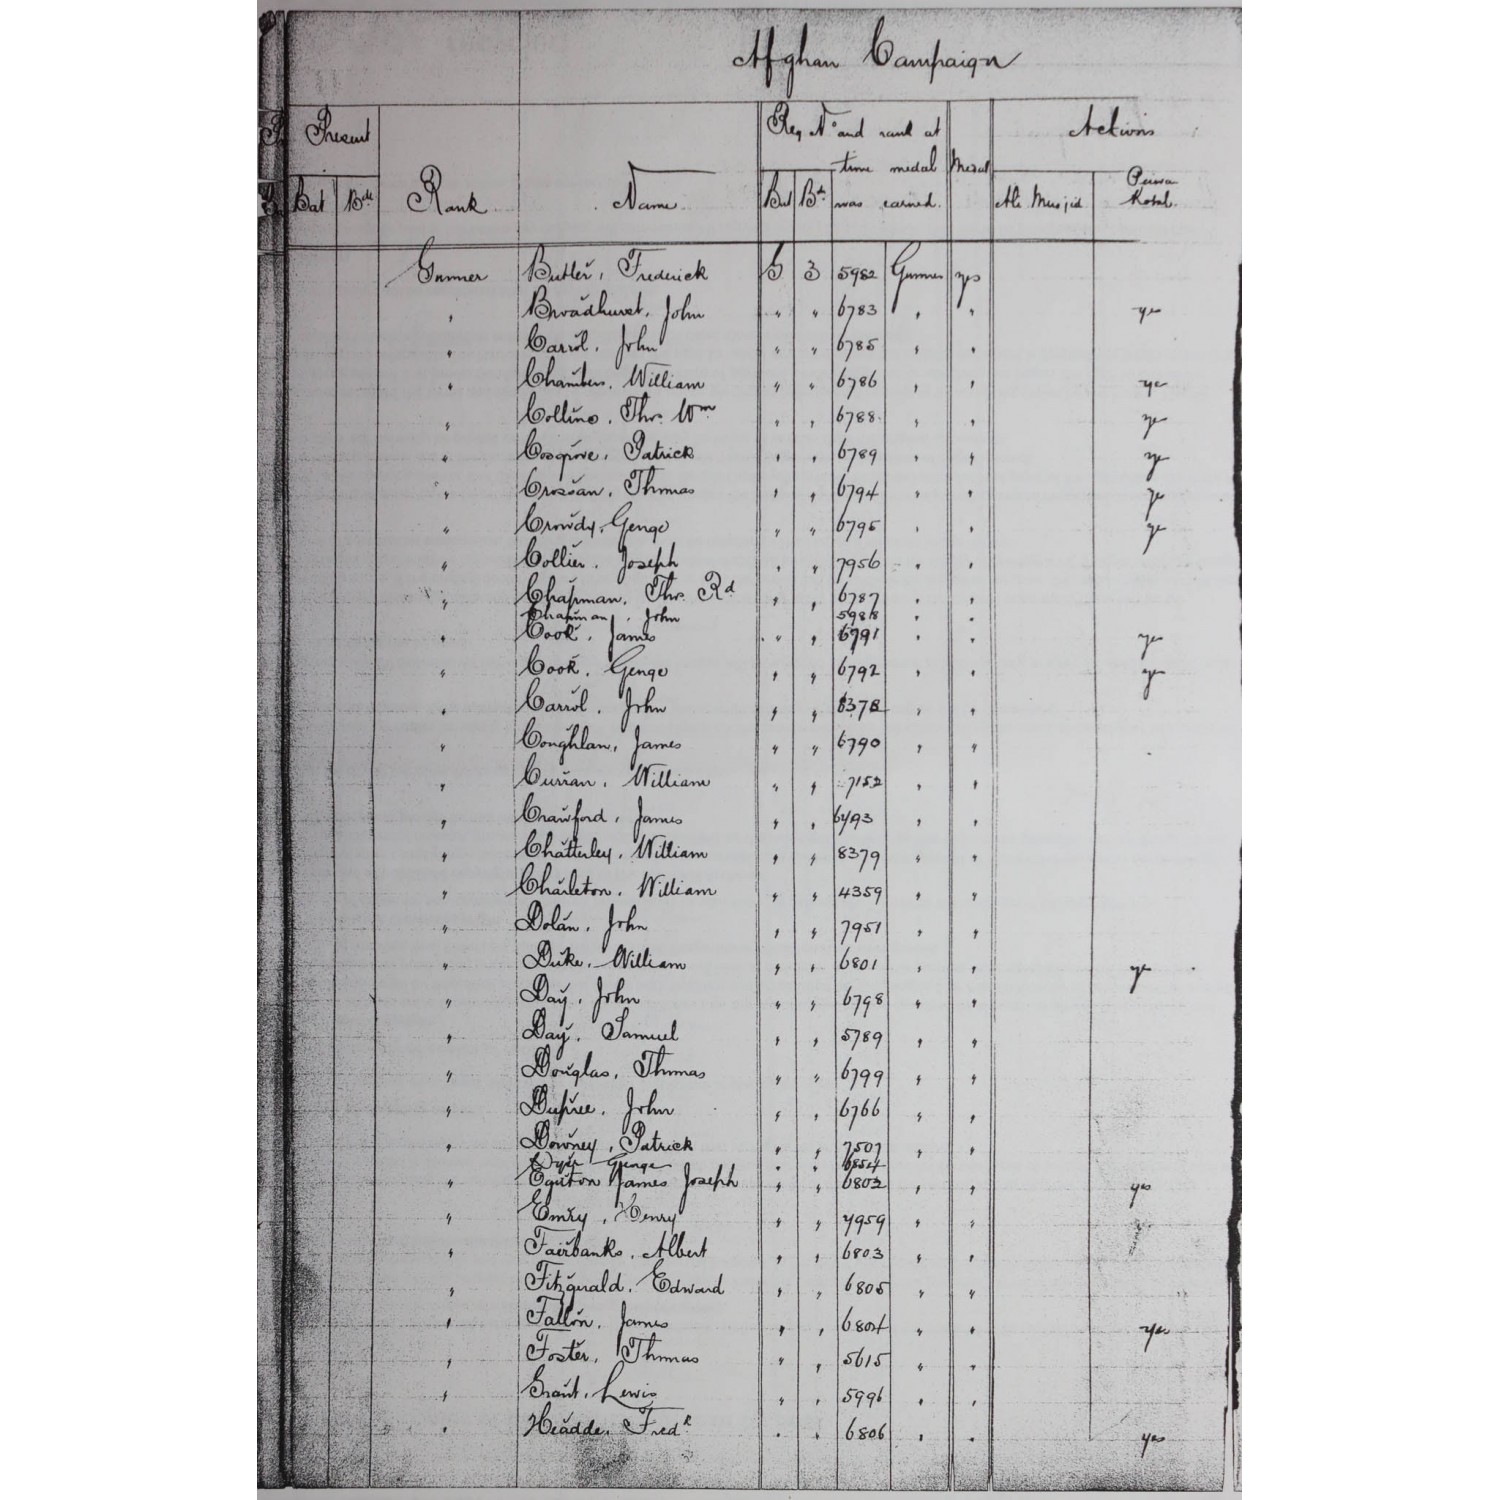 Afghan Campaign
Present Reg No and rank at Actions
time medal Medal
Bat Bde Rank Name Bat Bde was earned. Ali Musjid Peiwa
Kotal.
Gunner Butler, Frederick G 3 5982 Gunner yes
" Broadhurst, John " " 6783 " " yes
" Carrol, John " " 6785 " "
" Chambers, William " " 6786 " " ye
" Collins, Thos. Wm " " 6788 " " ye
" Cosgrove, Patrick " " 6789 " " ye
" Crossan, Thomas " " 6794 " " ye
" Crowdy, George " " 6795 " " ye
" Collier, Joseph " " 7956 " "
" Chapman, Thos. Rd " " 6787 " "
Chapman, John 5988 " "
" Cook, James " " 6791 " " yes
" Cook, George " " 6792 " " ye
" Carrol, John " " 8378 " "
" Coughlan, James " " 6790 " "
" Curran, William " " 7152 " "
" Crawford, James " " 6793 " "
" Chatterley, William " " 8379 " "
" Charleton, William " " 4359 " "
" Dolan, John " " 7951 " "
" Duke, William " " 6801 " " ye
" Day, John " " 6798 " "
" Day, Samuel " " 5789 " "
" Douglas, Thomas " " 6799 " "
" Dupree, John " " 6766 " "
" Downey, Patrick " " 7507 " "
Dyer George " " 6854
" Eguton James Joseph " " 6802 " " yes
" Emry, Henry " " 7959 " "
" Fairbanks, Albert " " 6803 " "
" Fitzgerald, Edward " " 6805 " "
" Fallon, James " " 6804 " " yes
" Foster, Thomas " " 5615 " "
" Grant, Lewis " " 5996 " "
" Headde, Fredk " " 6806 " " yes